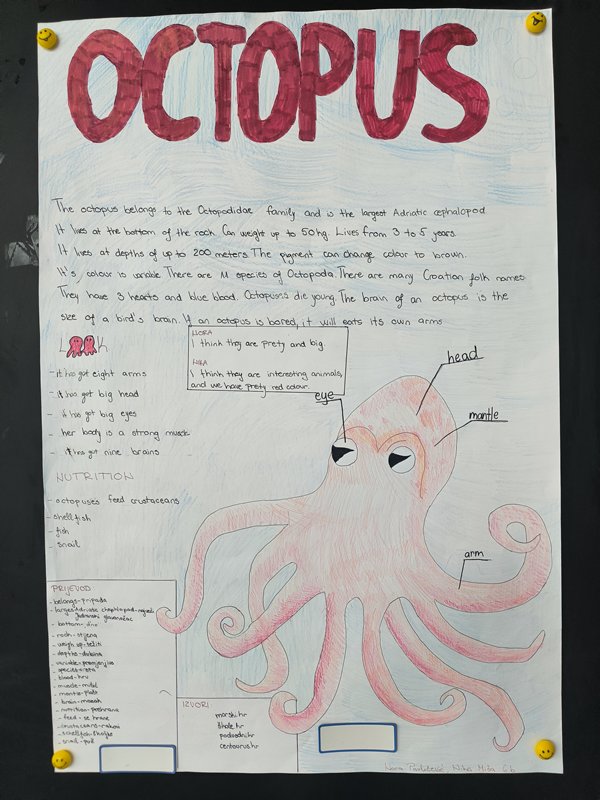 OCTOPUS
The octopus belongs to the Octopodidae family and is the largest Adriatic cephalopod.
It lives at the bottom of the rock. Can weight up to 50 kg. Lives from 3 to 5 years.
It lives at depths of up to 200 meters. The pigment can change colour to brown.
It's, colour is variable. There are 11 species of Octopoda. There are many Croatian folk names.
They have 3 hearts and blue blood. Octopuses die young. The brain of an octopus is the
size of a bird's brain. If an octopus is bored, it will eats its own arms.
LOOK
- it has got eight arms
- it has got big head
- it has got big eyes
- her body is a strong muscle
- it has got nine brains
NUTRITION
- octopuses feed crustaceans
- shellfish
- fish
- snail
I think they are prety and big.
NIKA
I think they are interesting animals,
and we have prety red colour.
eye
head
mantle
arm
PRIJEVOD
- belongs - pripada
- bottom - dno
- rock - stijena
- weigh up - težiti
- depths - dubina
- variable - promjenjiva
- species - vrsta
- blood - krv
- muscle - mišić
- mantle - plašt
- brain - mozak
- nutrition - prehrana
- feed - se hrane
- crustaceans - rakovi
- shellfish - školjke
- snail - puž
IZVORI
morski.hr
podvodni.hr
centaurus.hr